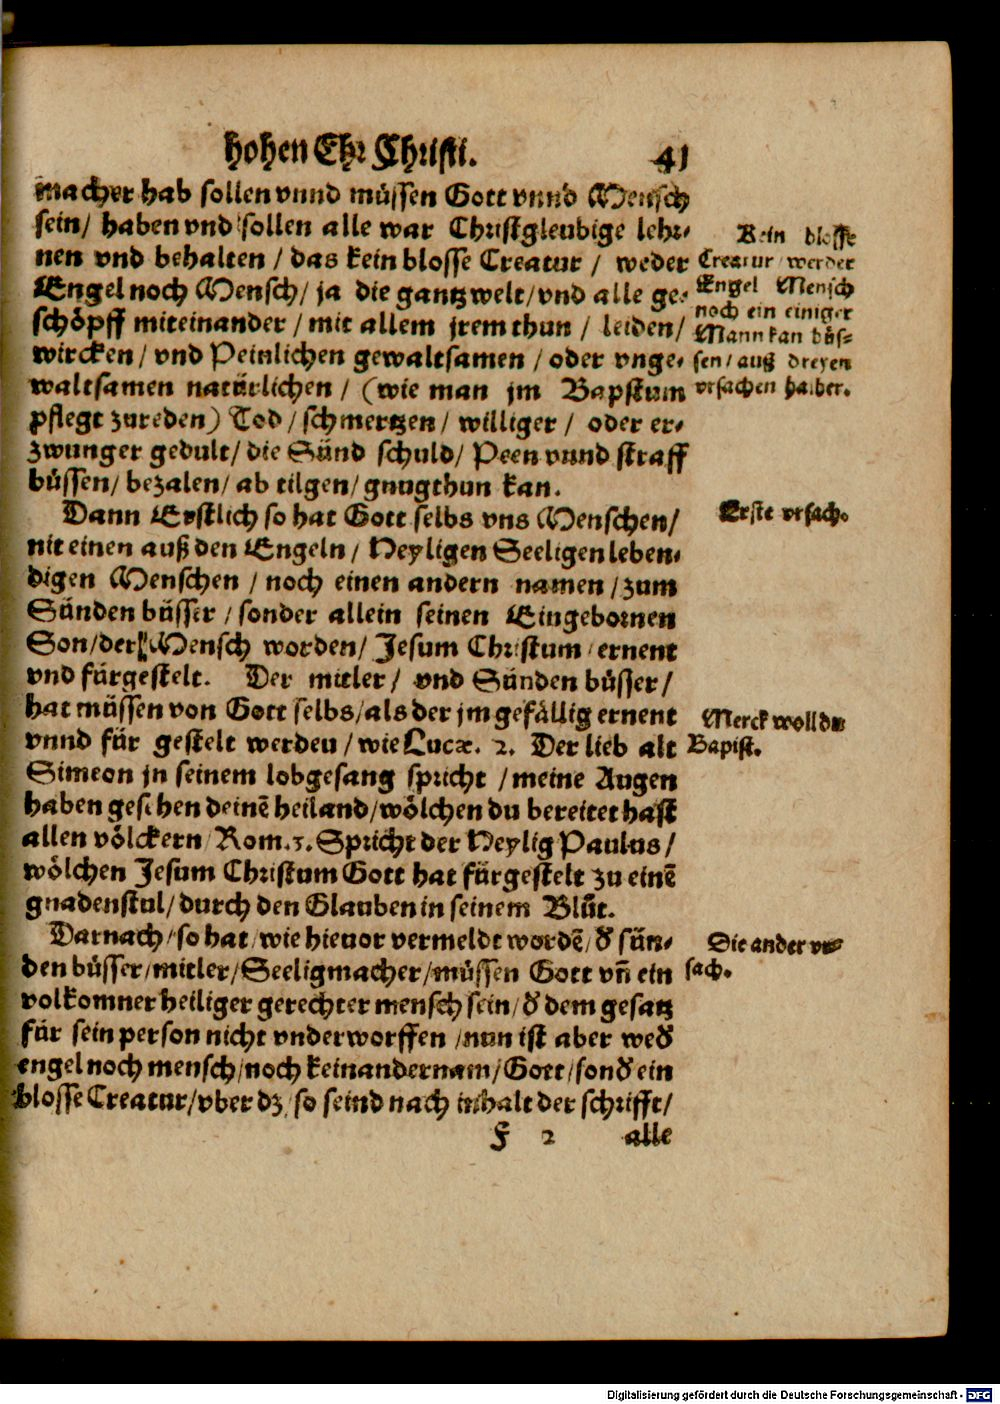 hohen Ehr Christi. 41
macher hab sollen vnnd müssen Gott vnnd Mensch
sein/ haben vnd sollen alle war Christgleubige lehr⸗
nen vnd behalten / das kein blosse Creatur / weder
Engel noch Mensch/ ja die gantz welt/ vnd alle ge⸗
schöpff miteinander / mit allem jrem thun / leiden/
wircken/ vnd Peinlichen gewaltsamen / oder vnge⸗
waltsamen natürlichen / (wie man jm Bapstum
pflegt zureden) Tod/ schmertzen/ williger / oder er⸗
zwunger gedult/ die Sünd schuld/ Peen vnnd straff
büssen/ bezalen/ ab tilgen/ gnugthun kan.
Kein blosse
Creatur werder
Engel Mensch
noch ein einiger
Mann kan büs⸗
sen/ auß dreyen
vrsachen halber.
Dann Erstlich so hat Gott selbs vns Menschen/
nit einen auß den Engeln/ Heyligen Seeligen leben⸗
digen Menschen / noch einen andern namen / zum
Sünden büsser / sonder allein seinen Eingebornen
Son/ der Mensch worden/ Jesum Christum ernent
vnd fürgestelt. Der mitler/ vnd Sünden büsser/
hat müssen von Gott selbs/ als der jm gefällig ernent
vnnd für gestelt werden/ wie Lucæ. 2. Der lieb alt
Simeon jn seinem lobgesang spricht / meine Augen
haben gesehen deinē heiland/ wölchen du bereitet hast
allen völckern/ Rom. 3. Spricht der Heylig Paulus/
wölchen Jesum Christum Gott hat fürgestelt zu einē
gnadenstul/ durch den Glauben in seinem Blůt.
Erste vrsach.
Merck woll du
Bapist.
Darnach/ so hat/ wie hieuor vermeldt wordē/ d' sün⸗
den büsser/ mitler/ Seeligmacher/ müssen Gott vn̄ ein
volkomner heiliger gerechter mensch sein/ d' dem gesatz
für sein person nicht vnderworffen / nun ist aber wed'
engel noch mensch/ noch kein ander nam/ Gott/ sond' ein
blosse Creatur/ vber dz/ so seind nach inhalt der schrifft/
Die ander vr⸗
sach.
F 2 alle
Digitalisierung gefördert durch die Deutsche Forschungsgemeinschaft - DFG